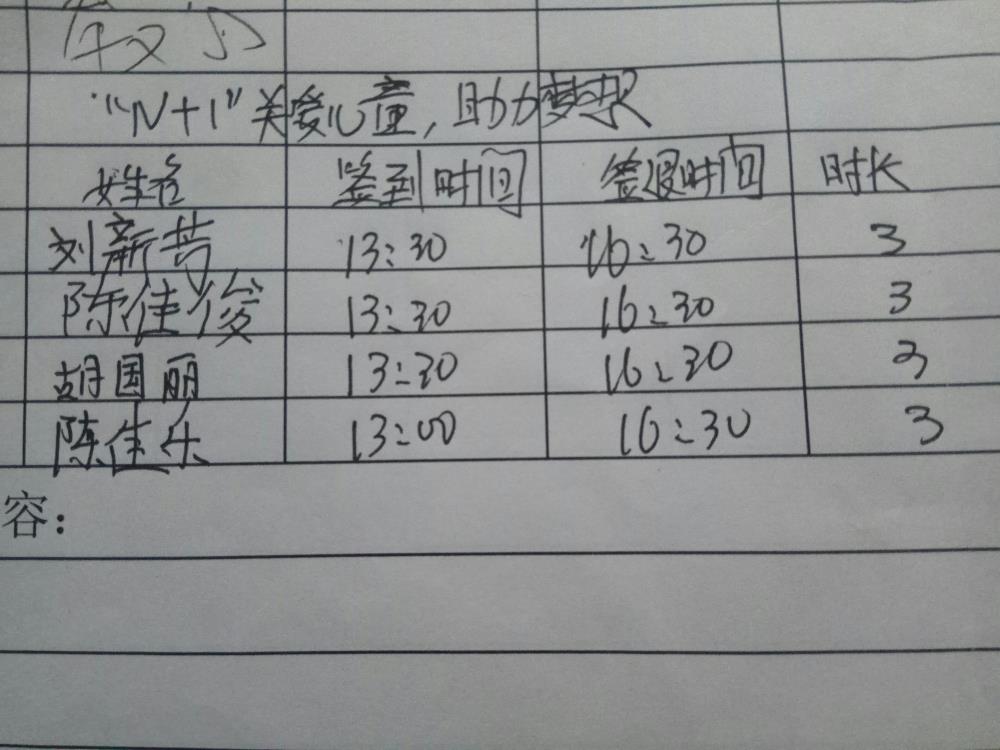 "N+1"关爱儿童,助力梦想
姓名 签到时间 签退时间 时长
刘新芳 13:30 16:30 3
陈佳俊 13:30 16:30 3
胡国丽 13:30 16:30 3
陈佳乐 13:00 16:30 3
容: